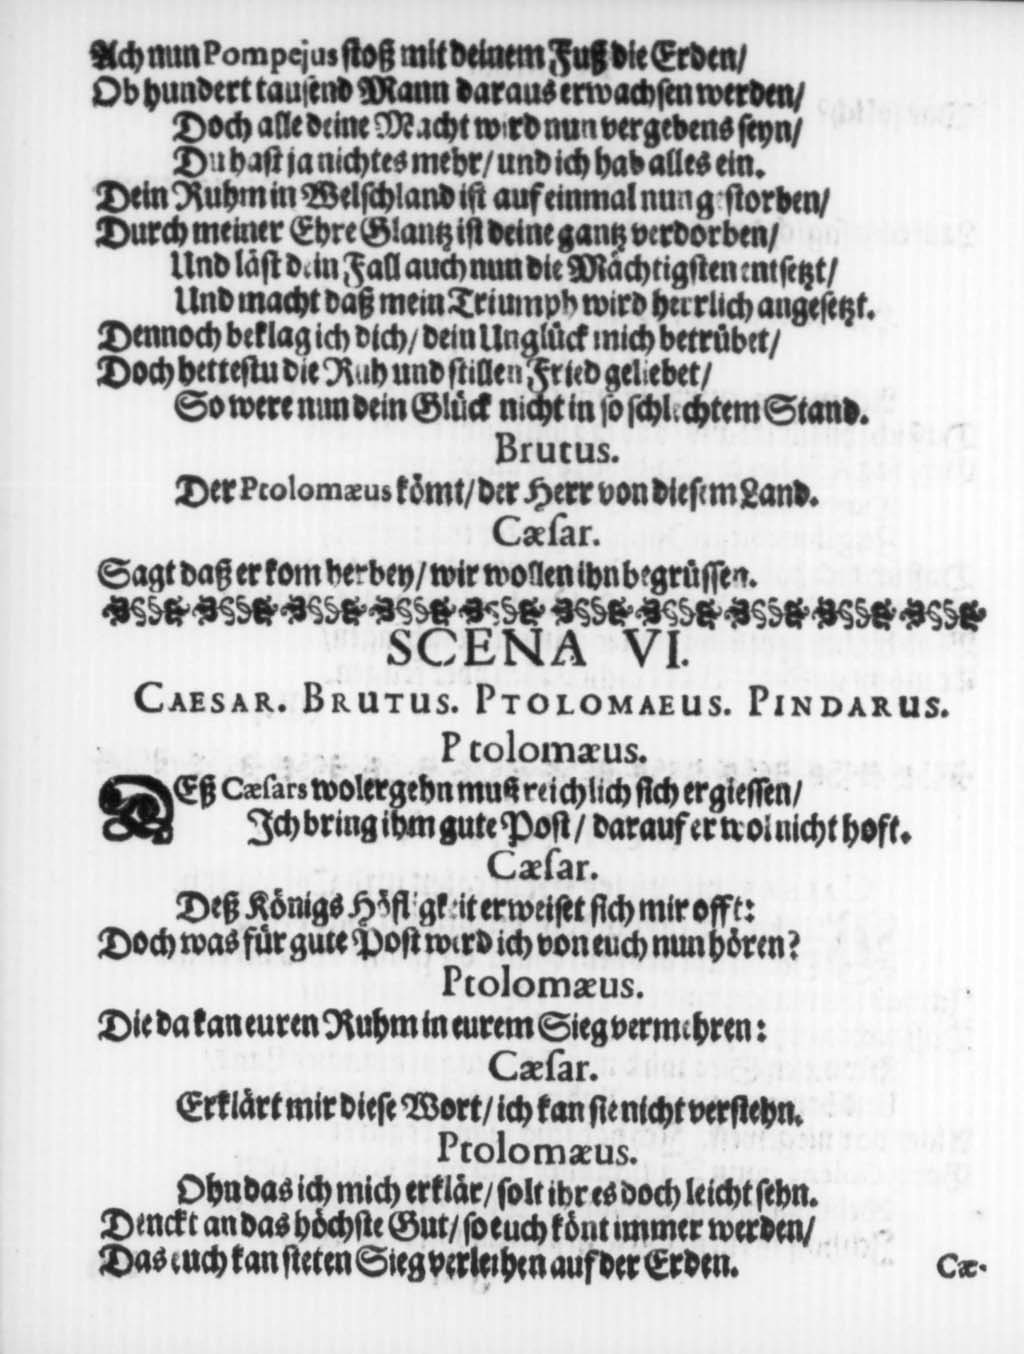 Ach nun Pompejus stoß mit deinem Fuß die Erden/
Ob hundert tausend Mann daraus erwachsen werden/
Doch alle deine Macht wird nun vergebens seyn/
Du hast ja nichtes mehr/ und ich hab alles ein.
Dein Ruhm in Welschland ist auf einmal nun gestorben/
Durch meiner Ehre Glantz ist deine gantz verdorben/
Und läst dein Fall auch nun die Mächtigsten entsetzt/
Und macht daß mein Triumph wird herrlich angesetzt.
Dennoch beklag ich dich/ dein Unglück mich betrübet/
Doch hettestu die Ruh und stillen Fried geliebet/
So were nun dein Glück nicht in so schlechtem Stand.
Brutus.
Der Ptolomæus kömt/ der Herr von diesem Land.
Cæſar.
Sagt daß er kom herbey/ wir wollen ihn begrüssen.
SCENA VI.
CAESAR. BRUTUS. PTOLOMAEUS. PINDARUS.
Ptolomæus.
DEß Cæſars wolergehn muß reichlich sich ergiessen/
Ich bring ihm gute Post/ darauf er wol nicht hoft.
Cæſar.
Deß Königs Höfligkeit erweiset sich mir offt:
Doch was für gute Post werd ich von euch nun hören?
Ptolomæus.
Die da kan euren Ruhm in eurem Sieg vermehren:
Cæſar.
Erklärt mir diese Wort/ ich kan sie nicht verstehn.
Ptolomæus.
Ohn das ich mich erklär/ solt ihr es doch leicht sehn.
Denckt an das höchste Gut/ so euch könt immer werden/
Das euch kan steten Sieg verleihen auf der Erden.
Cæ-